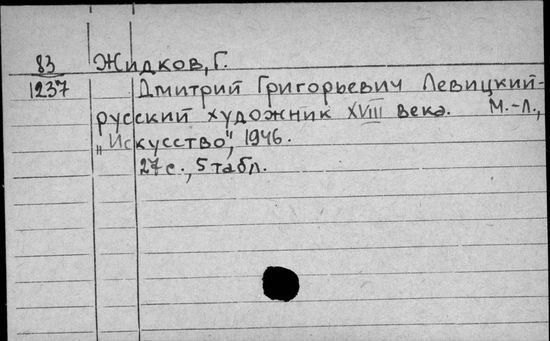 83 Жидков, Г.
1237 Дмитрий Григорьевич Левицкий-
русский художник XVIII века. М.-Л.,
„Искусство", 1946.
27 с., 5 табл.